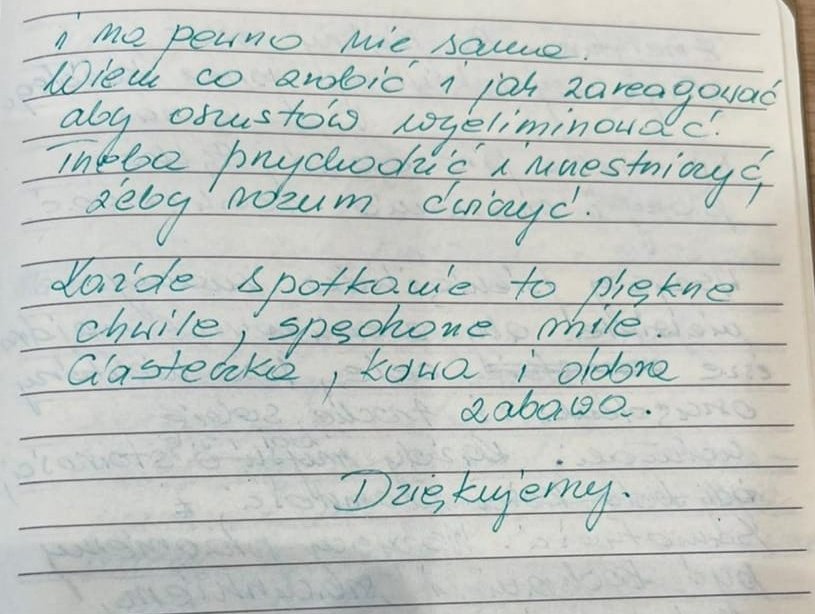 i na pewno nie sama.
Wiem co zrobić i jak zareagować
aby oszustów wyeliminować.
Trzeba przychodzić i uczestniczyć,
żeby rozum ćwiczyć.
Każde spotkanie to piękne
chwile, spędzone mile.
Ciasteczka, kawa i dobra
zabawa.
Dziękujemy.